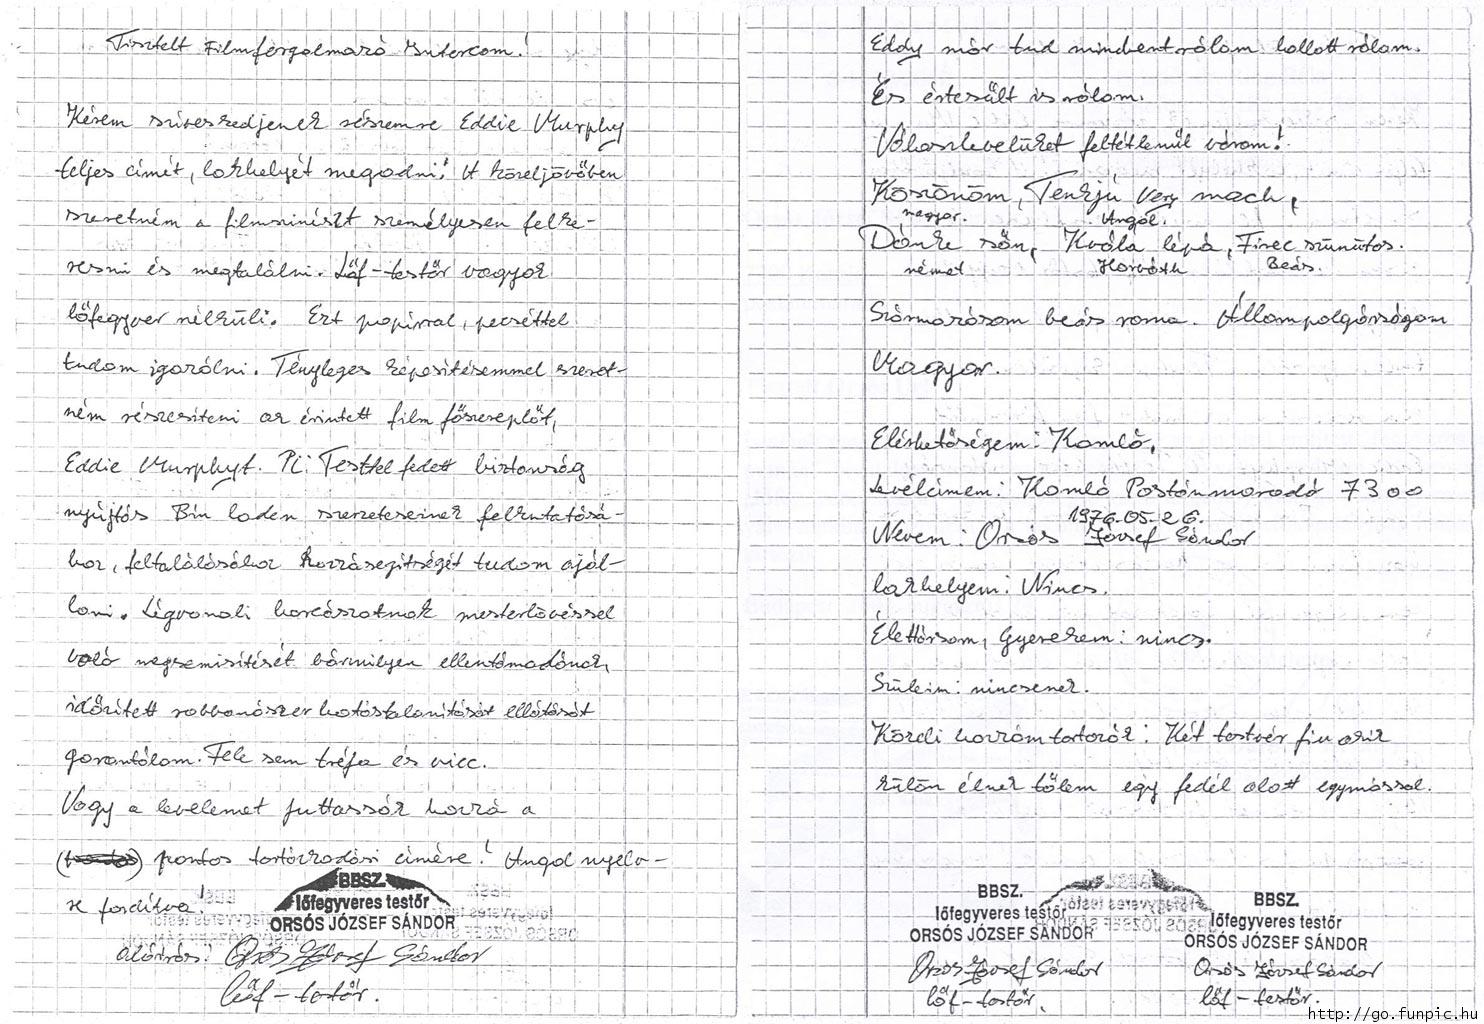 Tisztelt Filmforgalmazó Intercom!
Kérem sziveskedjenek részemre Eddie Murphy
teljes címét, lakhelyét megadni! A közeljövőben
szeretném a filmszinészt személyesen felke-
resni és megtalálni. Lőf-testőr vagyok
lőfegyver nélküli. Ezt papirral, pecséttel
tudom igazolni. Tényleges képesitésemmel szeret-
ném részesíteni az érintett film főszereplőt,
Eddie Murphyt. Pl: Testtel fedett biztonság
nyújtás Bin laden szervezeteinek felkutatásá-
hoz, feltalálásához hozzásegitségét tudom aján-
lani. Légvonali harcászatnak mesterlövéssel
való megsemisitését bármilyen ellentámadónak,
időzitett robbanószer hatástalanitását ellátását
garantálom. Fele sem tréfa és vicc.
Vagy a levelemet juttassák hozzá a
pontos tartózkodási címére! Angol nyelv-
re forditva!
BBSZ.
lőfegyveres testőr
ORSÓS JÓZSEF SÁNDOR
aláírás: Orsós József Sándor
lőf-testőr.
Eddy már tud mindent rólam hallott rólam.
És értesült is rólam.
Válaszlevelüket feltétlenül várom!
Köszönöm, Tenkjú very mach,
magyar. Angol.
Dánke sőn, Hvála lépá, Firec szunutos.
német Horváth Beás.
Származásom beás roma. Állampolgárságom
Magyar.
Elérhetőségem: Komló,
Levélcimem: Komló Postánmaradó 7300
1976.05.26.
Nevem: Orsós József Sándor
lakhelyem: Nincs.
Élettársam, Gyerekem: nincs.
Szüleim: nincsenek.
Közeli hozzámtartozók: Két testvér fiu akik
külön élnek tőlem egy fedél alatt egymással.
BBSZ.
lőfegyveres testőr
ORSÓS JÓZSEF SÁNDOR
Orsós József Sándor
lőf-testőr.
BBSZ.
lőfegyveres testőr
ORSÓS JÓZSEF SÁNDOR
Orsós József Sándor
lőf-testőr.
http://go.funpic.hu